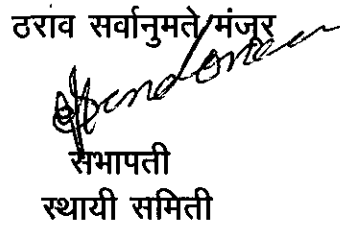 ठराव सर्वानुमते/मंजूर
सभापती
स्थायी समिती